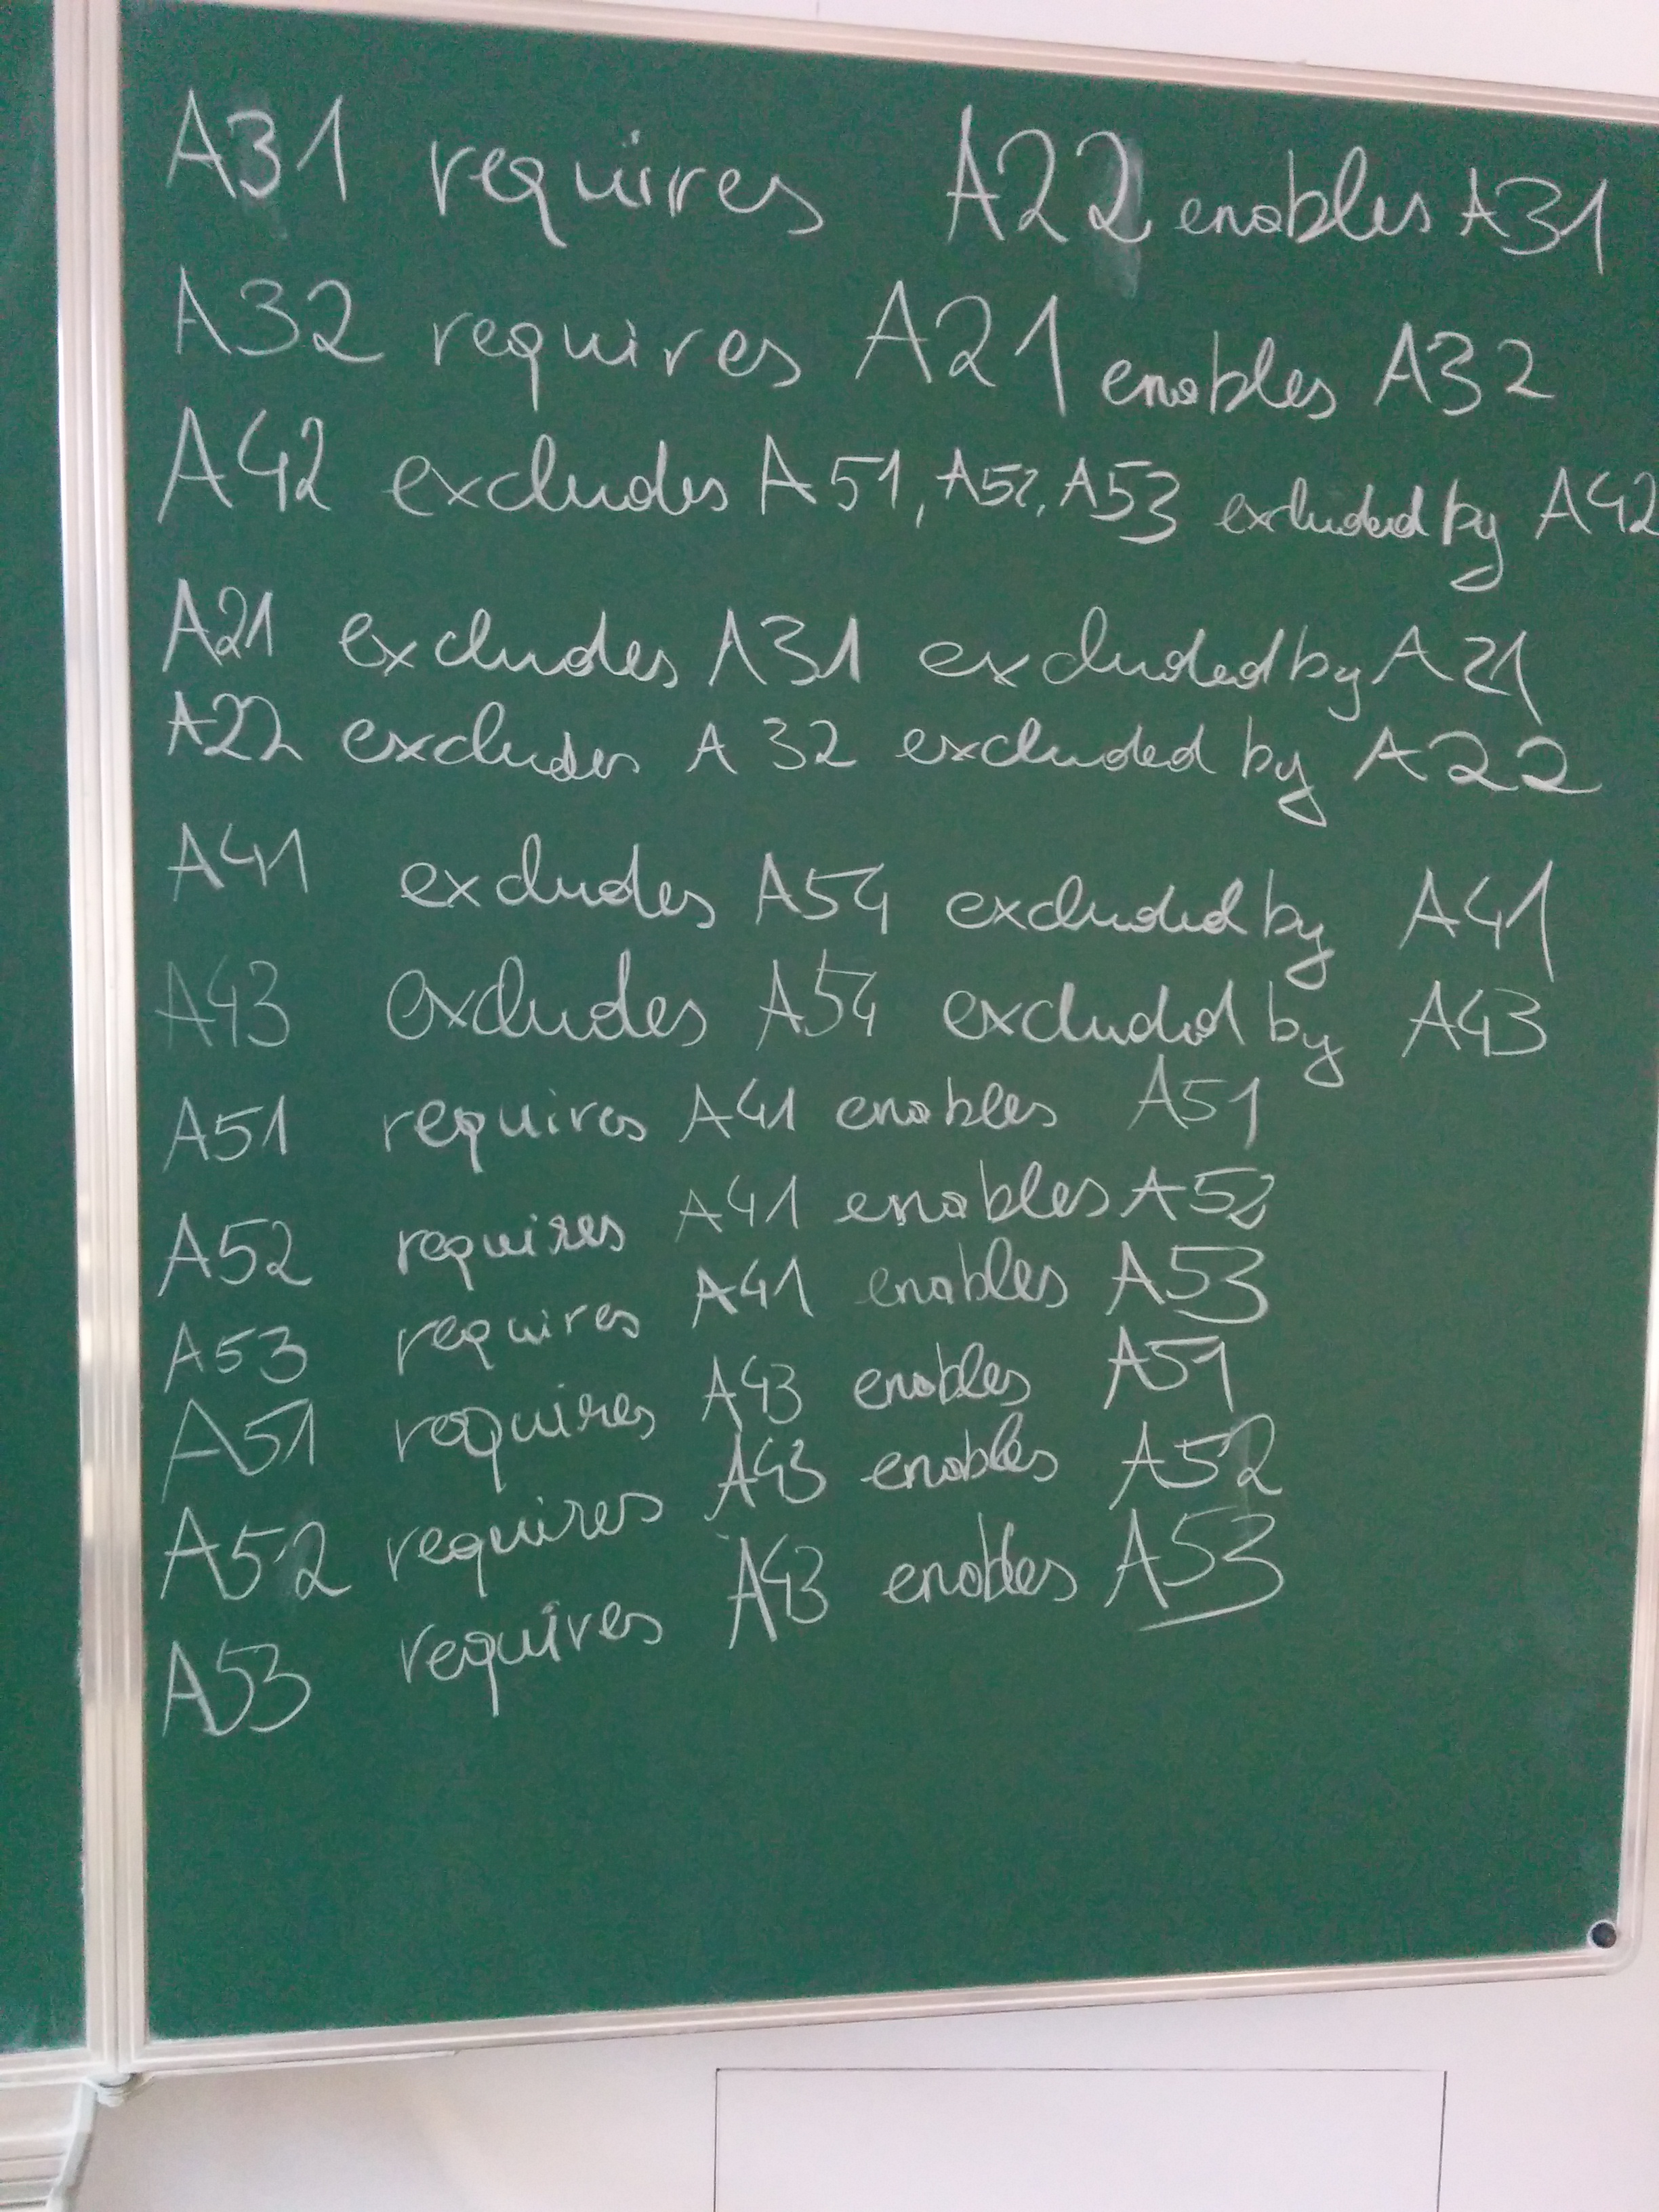 A31 requires A22 enables A31
A32 requires A21 enables A32
A42 excludes A51, A52, A53 excluded by A42
A21 excludes A31 excluded by A21
A22 excludes A32 excluded by A22
A41 excludes A54 excluded by A41
A43 excludes A54 excluded by A43
A51 requires A41 enables A51
A52 requires A41 enables A52
A53 requires A41 enables A53
A51 requires A43 enables A51
A52 requires A43 enables A52
A53 requires A43 enables A53